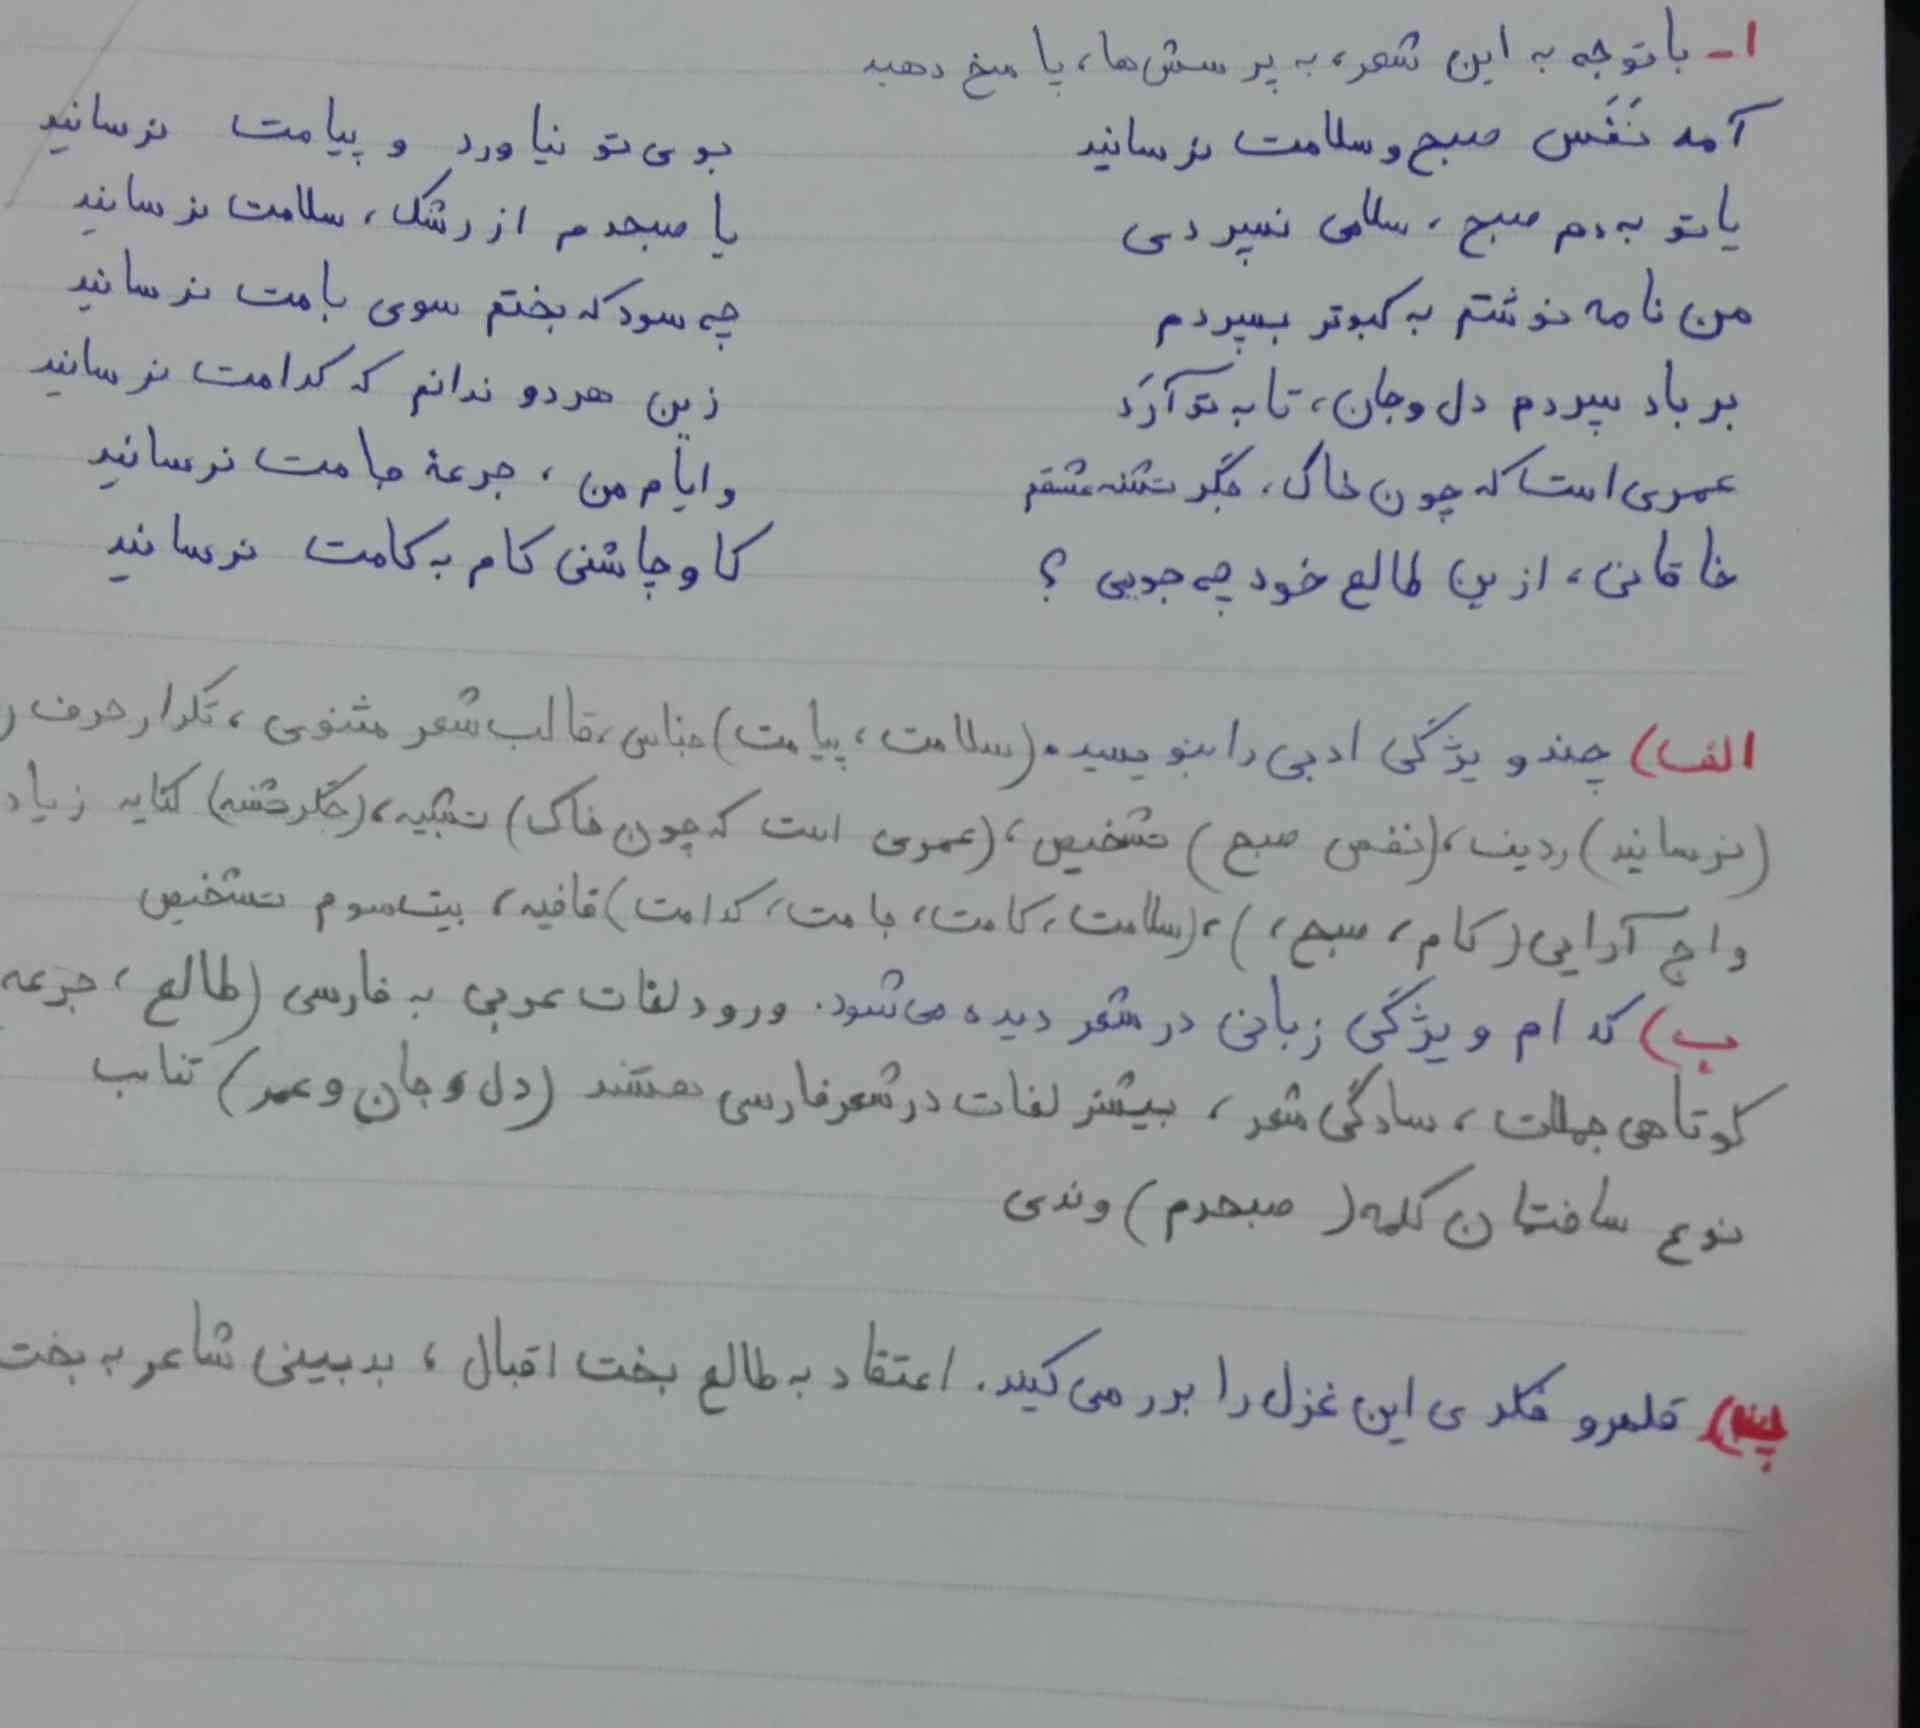 ۱- با توجه به این شعر، به پرسش‌ها، پاسخ دهید
آمد نَفَس صبح و سلامت نرسانید بوی تو نیاورد و پیامت نرسانید
یا تو به دم صبح، سلامی نسپردی یا صبحدم از رشک، سلامت نرسانید
من نامه نوشتم به کبوتر بسپردم چه سود که بختم سوی بامت نرسانید
بر باد سپردم دل و جان، تا به تو آرَد زین هر دو ندانم که کدامت نرسانید
عمری است که چون خاک، جگر تشنه عشقم و ایّام من، جرعهٔ جامت نرسانید
خاقانی، ازین طالع خود چه جویی؟ کاو چاشنی کام به کامت نرسانید
الف) چند ویژگی ادبی را بنویسید. (سلامت، پیامت) جناس، قالب شعر مثنوی، تکرار حرف ر
(نرسانید) ردیف، (نفس صبح) تشخیص، (عمری است که چون خاک) تشبیه، (جگر تشنه) کنایه زیاد
واج آرایی (کام، سبح،)، (سلامت، کامت، جامت، کدامت) قافیه، بیت سوم تشخیص
ب) کدام ویژگی زبانی در شعر دیده می‌شود. ورود لغات عربی به فارسی (طالع، جرعه
کوتاهی جملات، سادگی شعر، بیشتر لغات در شعر فارسی هستند (دل و جان و عمر) تناسب
نوع ساختمان کلمه (صبحدم) وندی
پ) قلمرو فکری این غزل را برر می‌کنید. اعتقاد به طالع بخت اقبال، بدبینی شاعر به بخت